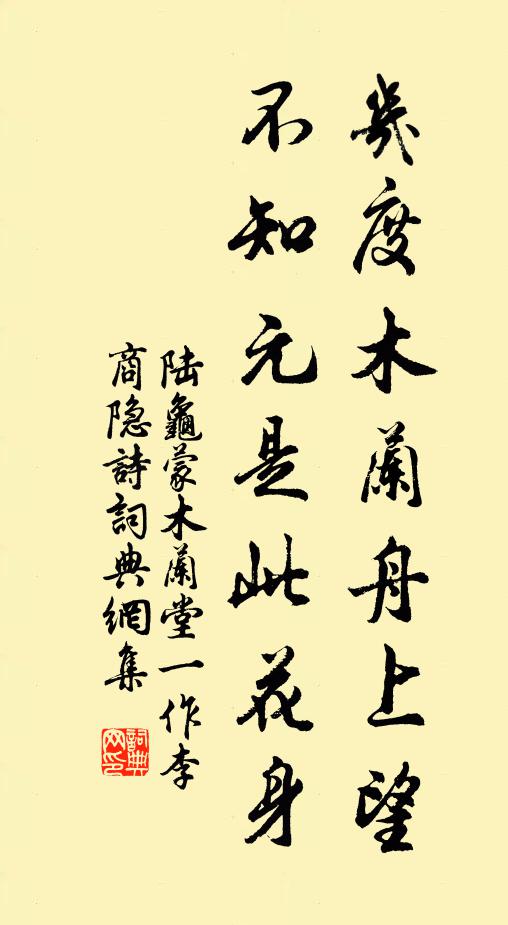 幾度木蘭舟上望
不知元是此花身
陸龜蒙木蘭堂一作李
商隐詩詞典網集
詞典
网印